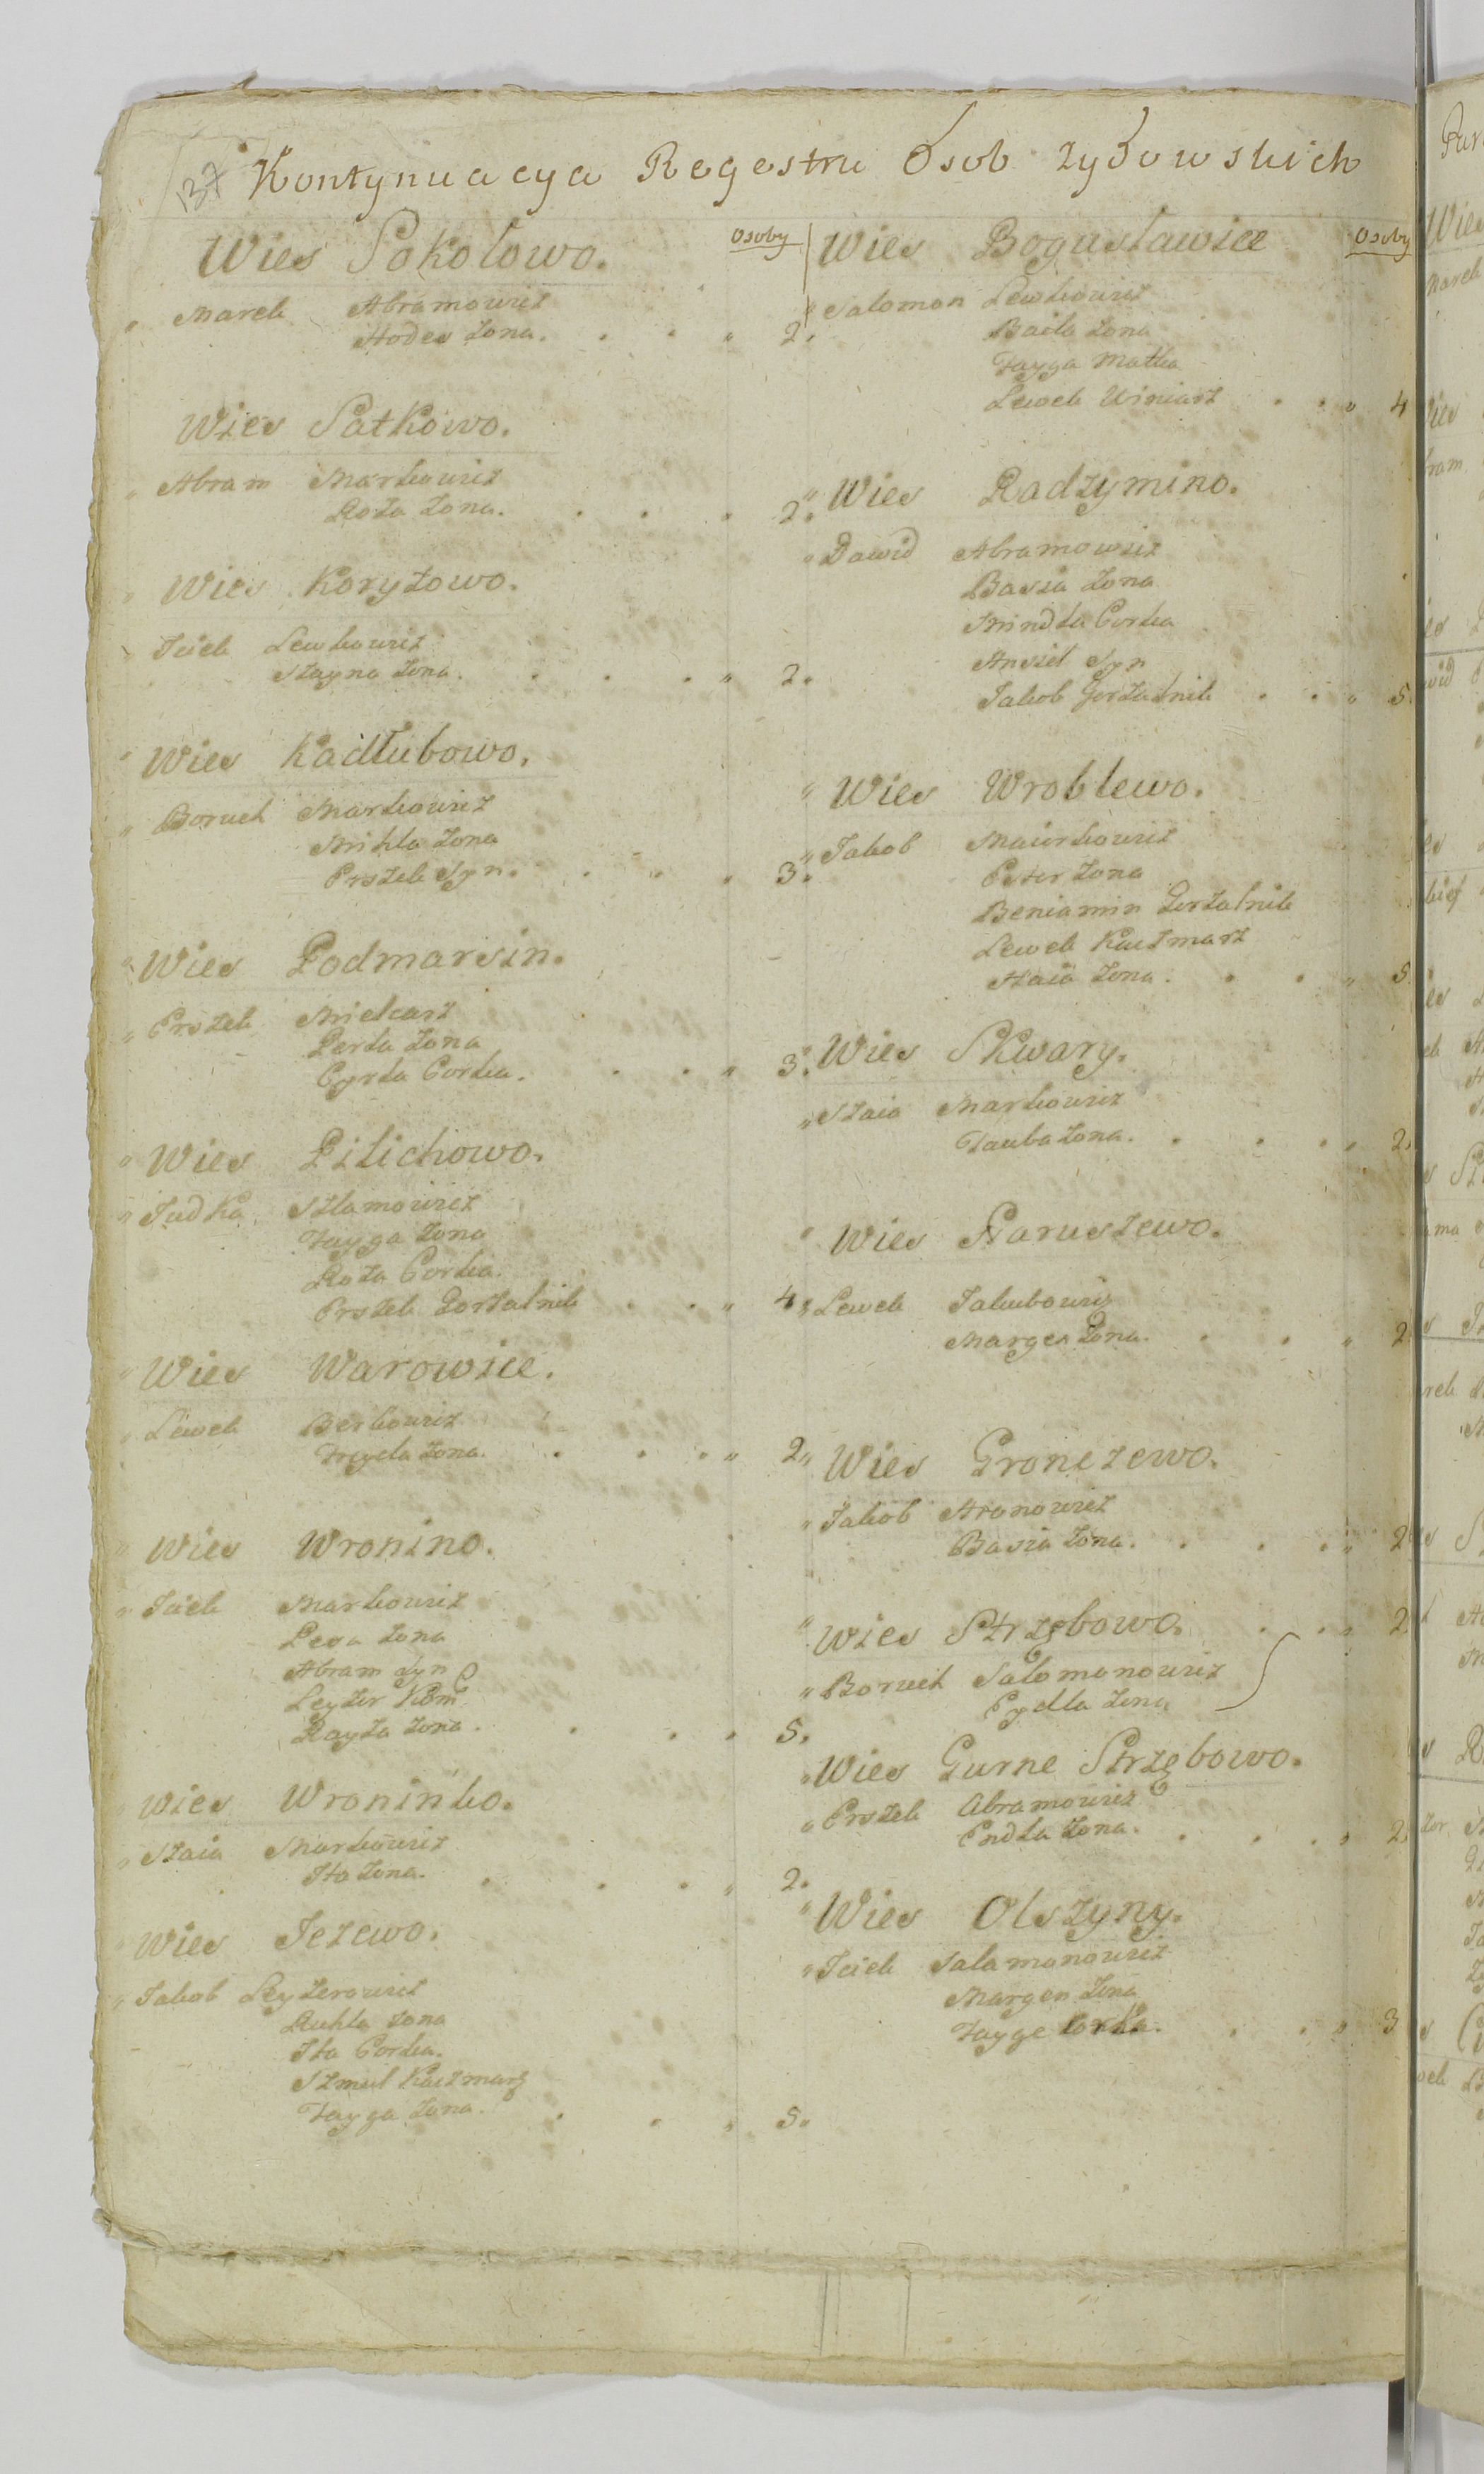 137 Kontynuacya Regestru Osob Zydowskich
Wies Sokolowo. Osoby
" Marek Abramowicz
Hodes Zona. . . " 2.
Wies Satkowo.
" Abram Markowicz
Roza Zona. . . " 2.
" Wies Koryzowo.
" Icick Lewkowicz
Szayna Zona. . . . " 2.
" Wies Kadłubowo.
" Boruch Markowicz
Mihla Zona
Erszek Syn. . " " 3.
" Wies Podmarsin.
" Erszek Mielcarz
Perla Zona
Cyrla Corka. . . " 3.
" Wies Pilichowo.
" Judka Szlamowicz
Fayga Zona
Roza Corka.
Erszek Gorzalnik . . " 4.
" Wies Warowice.
" Lewek Berkowicz
Frydla Zona. . . . " 2.
" Wies Wronino.
" Icick Markowicz
Pesa Zona
Abram Syn
Leyzer Kom.
Rayza Zona. . . . 5.
" Wies Wroninko.
" Szaia Markowicz
Ita Zona. . . . " 2.
Wies Jezewo.
" Jakob Leyzerowicz
Ruhla Zona
Ita Corka.
Szmul Kaczmarz
Fayga Zona. . . " 5.
Wies Bogusławice Osoby
" Salomon Lewkowicz
Baila Zona
Fayga Matka
Lewek Winiarz . . " 4
" Wies Radzymino.
" Dawid Abramowicz
Basia Zona
Mindla Corka
Ansiel Syn
Jakob Gorzalnik . . " 5.
" Wies Wroblewo.
" Jakob Maiorkowicz
Ester Zona
Beniamin Gorzalnik
Lewek Kaczmarz
Haia Zona. . . " 5
" Wies Skwary.
" Szaia Markowicz
Tauba Zona. . . . " 2.
" Wies Staruszewo.
" Lewek Jakubowicz
Marges Zona. . . " 2
" Wies Gronczewo.
" Jakob Aronowicz
Basia Zona. . . . " 2
" Wies Strzębowo. . . " 2
" Boruch Salomonowicz
Cydla Zona
" Wies Gurne Strzębowo.
" Erszek Abramowicz
Endla Zona. . . . " 2.
" Wies Olszyny.
" Icick Salamonowicz
Margen Zona
Fayge Corka. . . " 3